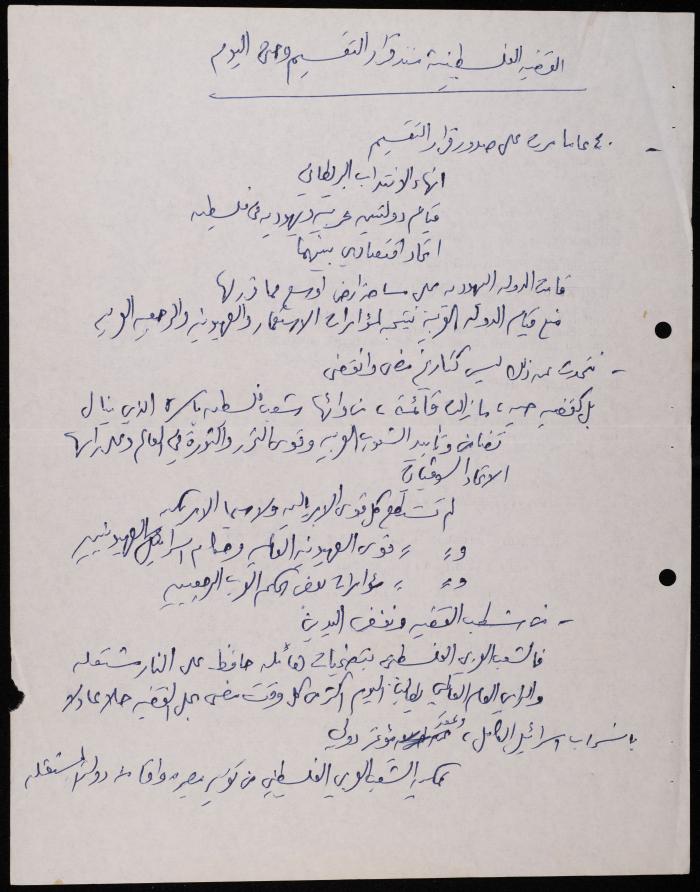 القضية الفلسطينية منذ قرار التقسيم وحتى اليوم
- ٤٠ عاما مرت على صدور قرار التقسيم
انهاء الانتداب البريطاني
قيام دولتين عربية ويهودية في فلسطين
اتحاد اقتصادي بينهما
قامت الدولة اليهودية على مساحة ارض اوسع مما قرر لها
منع قيام الدولة العربية نتيجة لمؤامرات الاستعمار والصهيونية والرجعية العربية
- نتحدث عن ذلك ليس كتاريخ مضى وانقضى
بل كقضية حية، ما زالت قائمة، شعب فلسطين بأسره الذي ينال
تضامن وتأييد الشعوب العربية وقوى التحرر والثورة في العالم وعلى رأسها
الاتحاد السوفياتي
لم تستطع كل قوى الامبريالية ولا سيما الامريكية
و〃 〃 قوى الصهيونية العالمية وحكام اسرائيل الصهيونيين
و〃 〃 مؤامرات بعض الحكام العرب الرجعيين
- من شطب القضية ونفض اليدين
فالشعب العربي الفلسطيني بتضحيات هائلة حافظ على النار مشتعلة
والرأي العام العالمي يطالب اليوم اكثر من كل وقت مضى بحل القضية حلا عادلا
بانسحاب اسرائيل الكامل، وعقد مؤتمر دولي
تمكين الشعب العربي الفلسطيني من تقرير مصيره واقامة دولته المستقلة